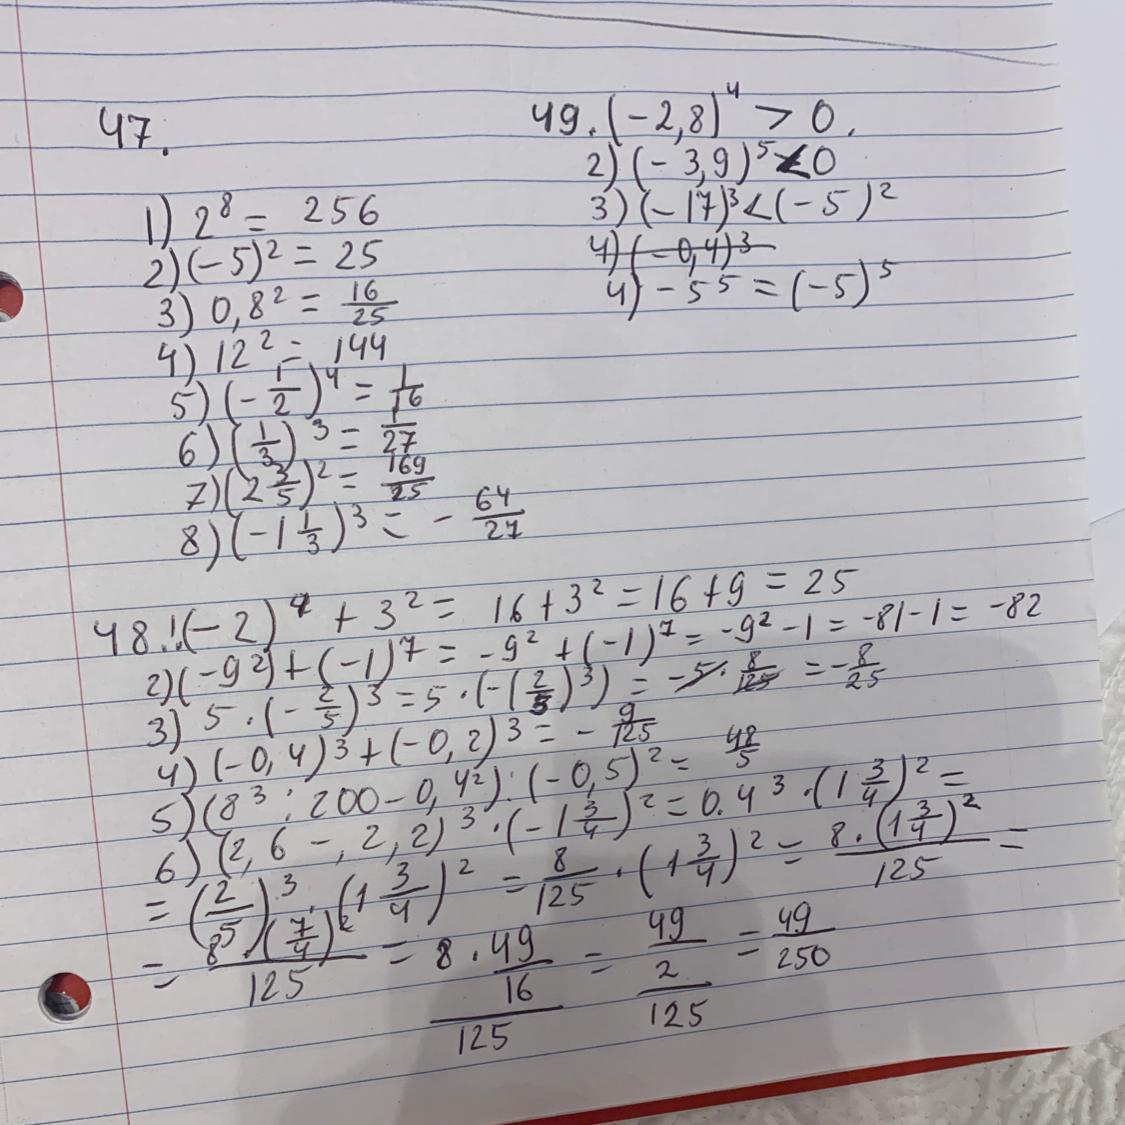 47.
1) 2⁸ = 256
2) (-5)² = 25
3) 0,8² = 16/25
4) 12² = 144
5) (-1/2)⁴ = 1/16
6) (1/3)³ = 1/27
7) (2 3/5)² = 169/25
8) (-1 1/3)³ = - 64/27
49. (-2,8)⁴ > 0.
2) (-3,9)⁵ < 0
3) (-17)³ < (-5)²
4) (-0,4)³
4) -5⁵ = (-5)⁵
48. 1. (-2)⁴ + 3² = 16 + 3² = 16 + 9 = 25
2) (-9²) + (-1)⁷ = -9² + (-1)⁷ = -9² - 1 = -81 - 1 = -82
3) 5 · (-2/5)³ = 5 · (-(2/5)³) = -5 · 8/125 = -8/25
4) (-0,4)³ + (-0,2)³ = - 9/125
5) (8³ : 200 - 0,4²) : (-0,5)² = 48/5
6) (2,6 -, 2,2)³ · (-1 3/4)² = 0.4³ · (1 3/4)² =
= (2/5)³ · (1 3/4)² = 8/125 · (1 3/4)² = 8 · (1 3/4)²/125 =
= 8 · (7/4)²/125 = 8 · 49/16/125 = 49/2/125 = 49/250